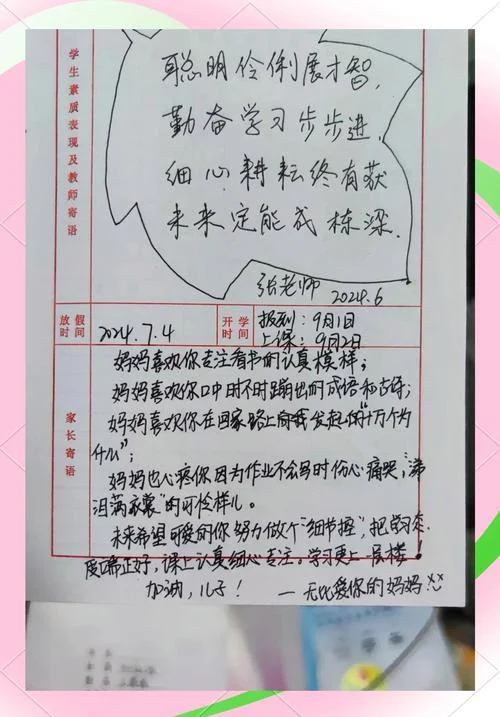 学生素质表现及教师寄语
聪明伶俐展才智,
勤奋学习步步进,
细心耕耘终有获
未来定能成栋梁.
张老师 2024.6
放假时间
2024.7.4
开学时间
报到:9月1日
上课:9月2日
家长寄语
妈妈喜欢你专注看书的认真模样;
妈妈喜欢你口中时不时蹦出的成语和古诗;
妈妈喜欢你在回家路上向我发起的"十万个为
什么";
妈妈也心疼你因为作业不会写时伤心痛哭,"涕
泪满衣裳"的可怜样儿。
未来希望可爱的你努力做个"细节控",把学习态
度端正好,课上认真细心专注。学习更上一层楼!
加油,儿子!
—无比爱你的妈妈